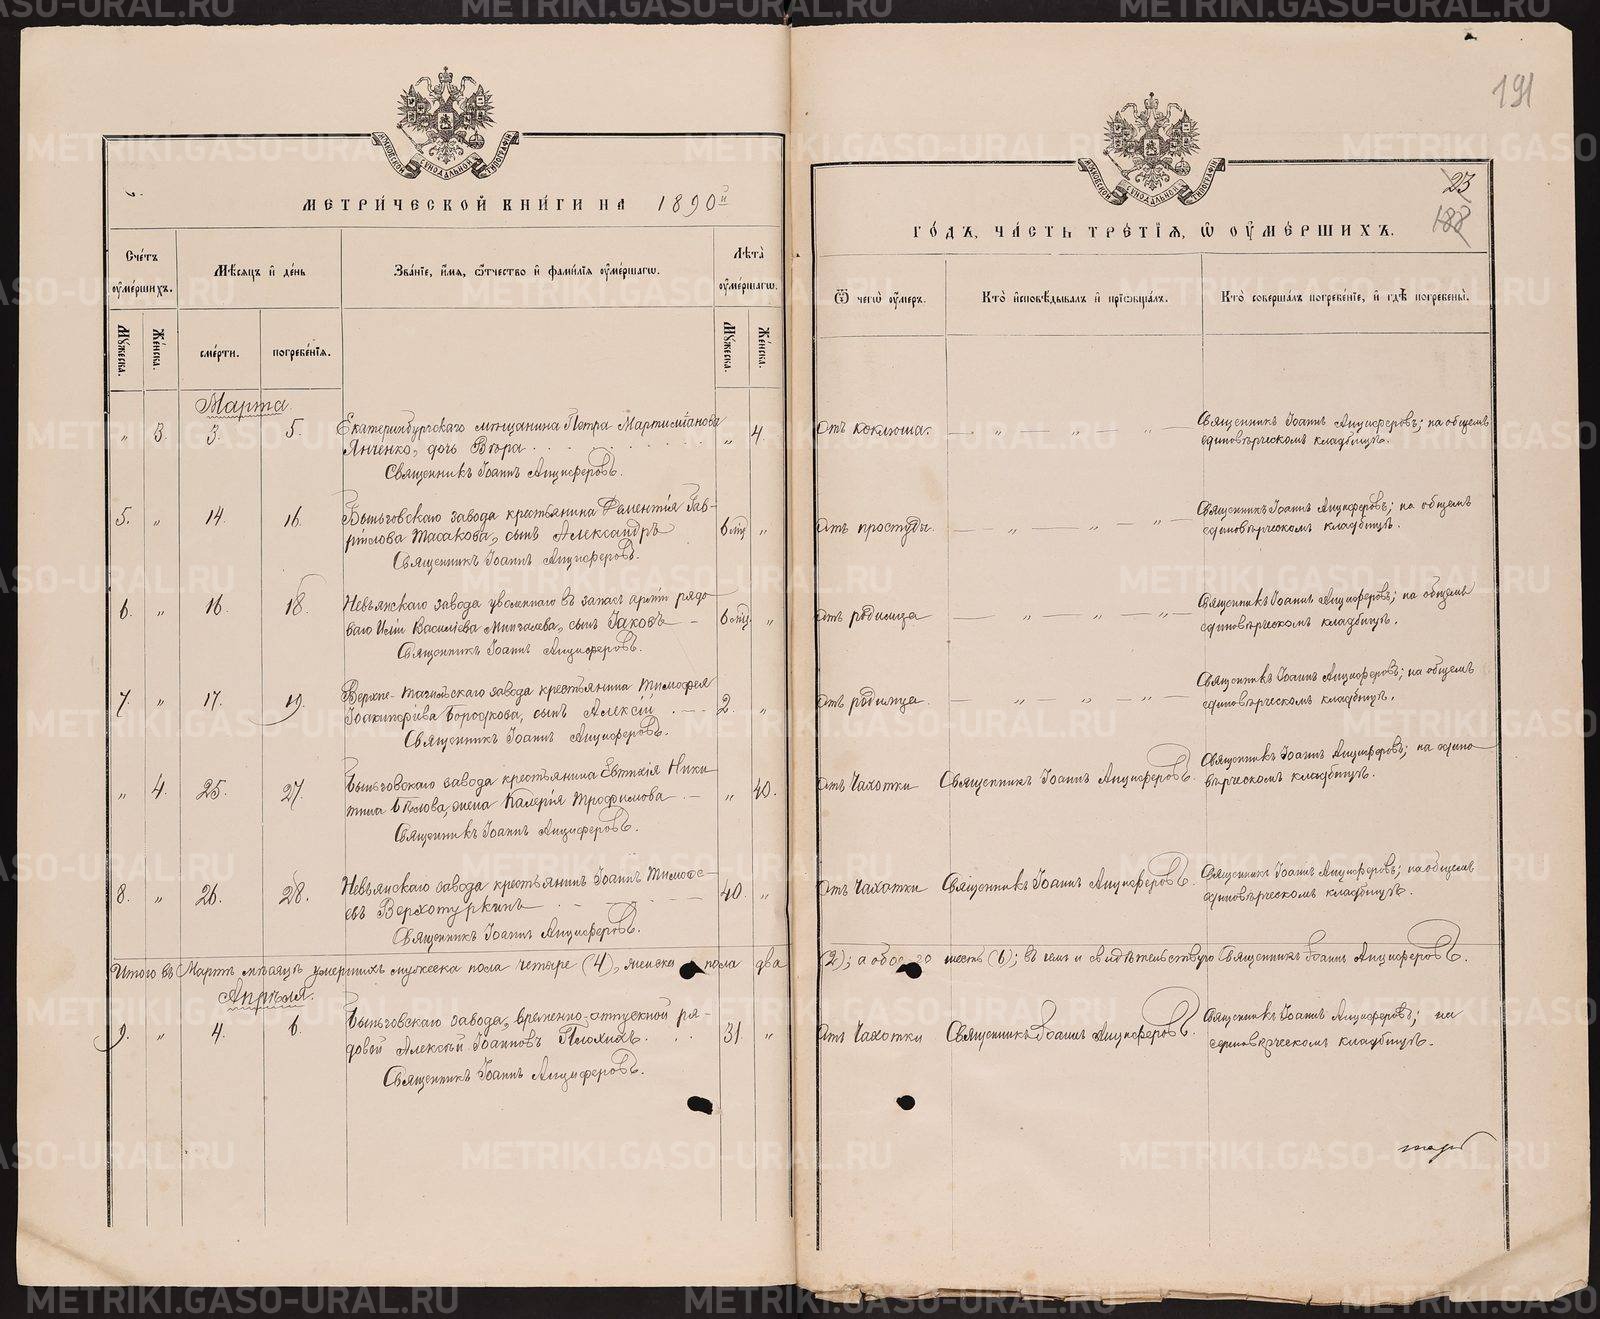 МЕТРИ́ЧЕСКОЙ КНИ́ГИ НА 1890й
Сче́тъ оу҆ме́ршихъ.
Мѣ́сяцъ и҆ де́нь
Зва́нїе, и҆́мя, ѻ҆́тчество и҆ фами́лїя оу҆ме́ршагѡ.
Лѣта̀ оу҆ме́ршагѡ.
Мꙋ́жеска.
Же́нска.
сме́рти.
погребе́нїя.
Мꙋ́жеска.
Же́нска.
Марта.
„ 3. 3. 5. Екатеринбургскаго мѣщанина Петра
Янченко, дочь Вѣра „ 4.
Священникъ Іоаннъ Анциферовъ.
5. „ 14. 16. Быньговскаго завода крестьянина Гав-
рилова сынъ Александръ 6 мц „
Священникъ Іоаннъ Анциферовъ.
6. „ 16. 18. Невьянскаго завода уволеннаго въ запасъ арміи рядо-
ваго Иліи Василіева сынъ Іаковъ 6 мц. „
Священникъ Іоаннъ Анциферовъ.
7. „ 17. 19. Верхне-Тагильскаго завода крестьянина Тимофея
сынъ Алексій 2. „
Священникъ Іоаннъ Анциферовъ.
„ 4. 25. 27. Быньговскаго завода крестьянина Евтихія Ники
тина Бѣлова, жена Калерія Трофимова „ 40.
Священникъ Іоаннъ Анциферовъ.
8. „ 26. 28. Невьянскаго завода крестьянинъ Іоаннъ Тимофе-
евъ Верхотуркинъ 40. „
Священникъ Іоаннъ Анциферовъ.
Итого въ Мартѣ мѣсяцѣ умершихъ мужеска пола четыре (4), женска пола два
Апрѣля.
9. „ 4. 6. Быньговскаго завода, временно-отпускной ря-
довой Алексѣй Іоанновъ Плохихъ. 31. „
Священникъ Іоаннъ Анциферовъ.
191
23
188
ГО́ДЪ, ЧА́СТЬ ТРЕ́ТЇЯ, Ѽ ОУ҆МЕ́РШИХЪ.
Ѿ чегѡ̀ оу҆́меръ.
Кто̀ и҆сповѣ́дывалъ и҆ прїѡбща́лъ.
Кто̀ соверша́лъ погребе́нїе, и҆ гдѣ̀ погребены̀.
Отъ коклюша. — „ — „ — „ — Священникъ Іоаннъ Анциферовъ; на общемъ
единовѣрческомъ кладбищѣ.
Отъ простуды. — „ — „ — „ — Священникъ Іоаннъ Анциферовъ; на общемъ
единовѣрческомъ кладбищѣ.
Отъ родимца — „ — „ — „ — Священникъ Іоаннъ Анциферовъ; на общемъ
единовѣрческомъ кладбищѣ.
Отъ родимца. — „ — „ — „ — Священникъ Іоаннъ Анциферовъ; на общемъ
единовѣрческомъ кладбищѣ.
Отъ Чахотки Священникъ Іоаннъ Анциферовъ. Священникъ Іоаннъ Анциферовъ; на едино
вѣрческомъ кладбищѣ.
Отъ Чахотки Священникъ Іоаннъ Анциферовъ. Священникъ Іоаннъ Анциферовъ; на общемъ
единовѣрческомъ кладбищѣ.
(2); а обоего шесть (6); въ чемъ и свидѣтельствую Священникъ Іоаннъ Анциферовъ.
Отъ Чахотки Священникъ Іоаннъ Анциферовъ. Священникъ Іоаннъ Анциферовъ; на
единовѣрческомъ кладбищѣ.
METRIKI.GASO-URAL.RU